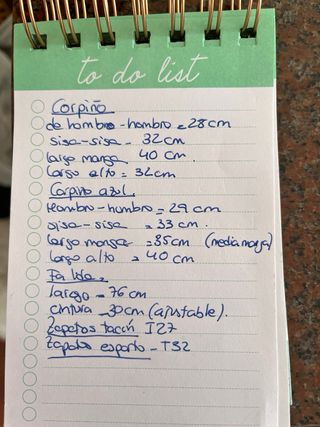 to do list
Corpiño
de hombro-hombro = 28cm
sisa-sisa - 32cm
largo manga 40 cm.
Largo alto = 32cm
Corpiño azul.
Hombro-hombro = 29 cm
sisa-sisa = 33 cm.
largo manga = 35cm (media manga)
largo alto = 40cm
Falda.
largo = 76cm
cintura - 30cm (ajustable).
Zapatos tacón T27
Zapato esparto - T32